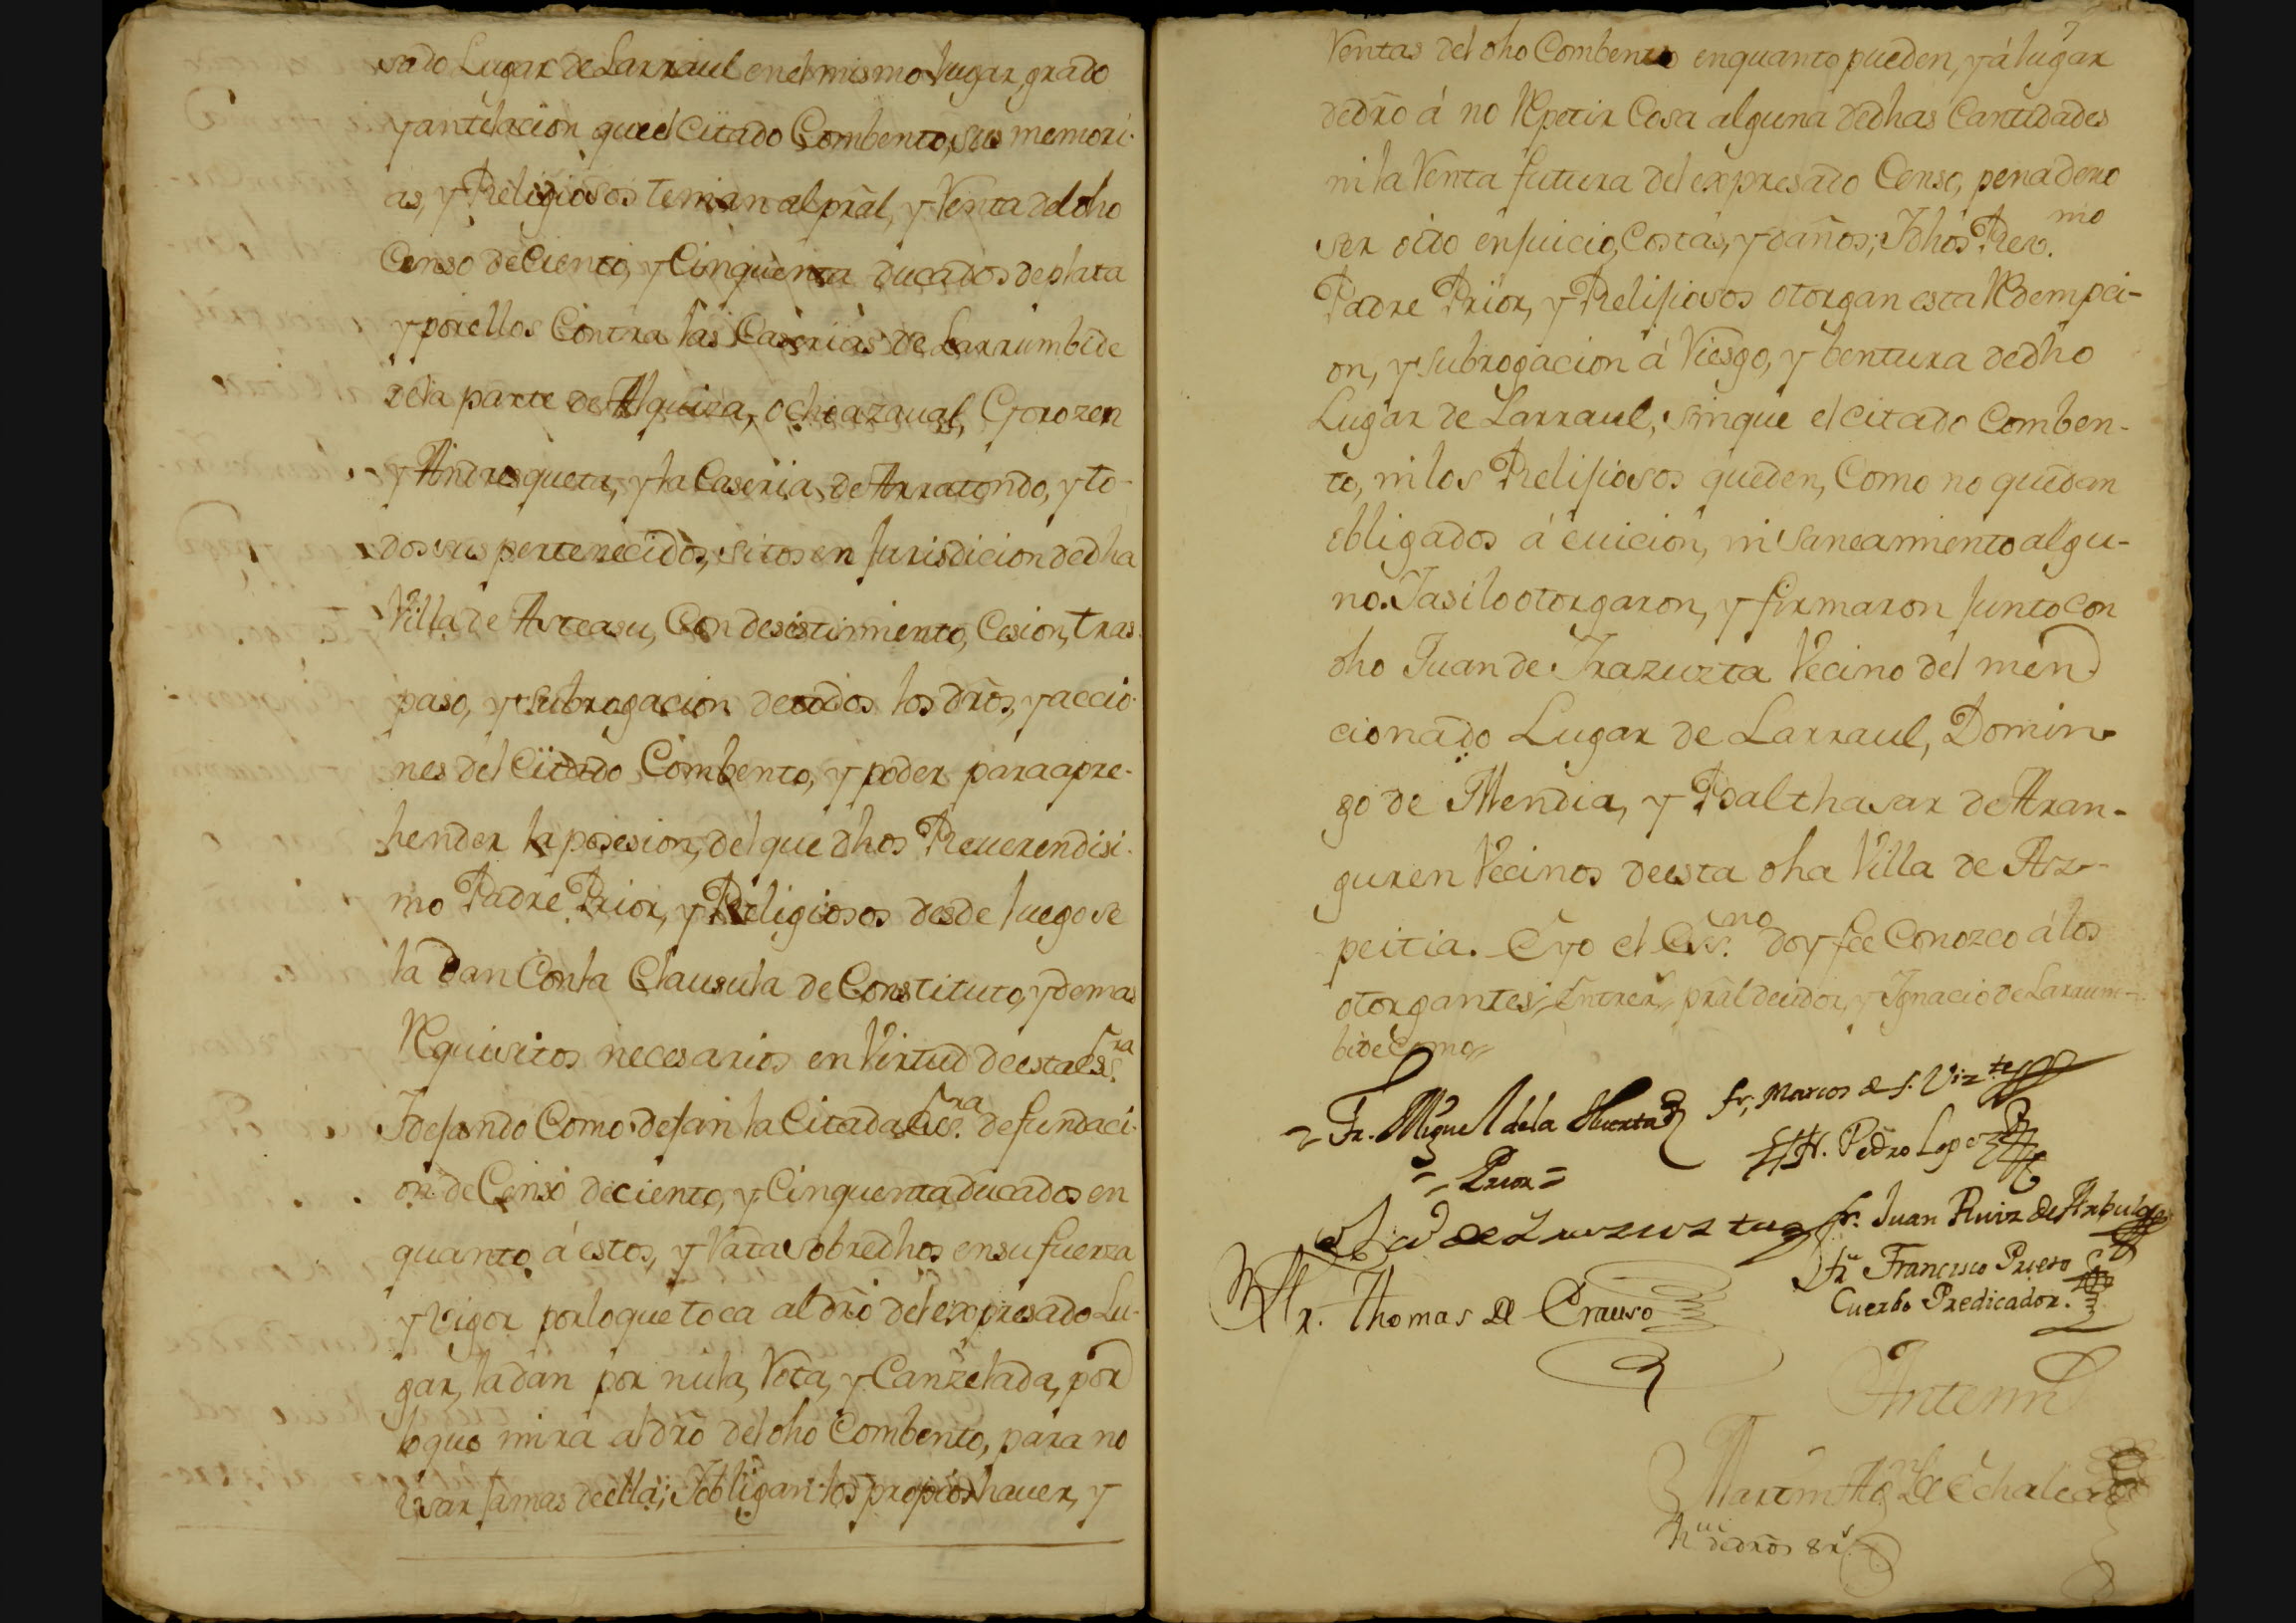 sado Lugar de Larraul en el mismo lugar, grado
y antelacion que el Citado Combento, sus memori-
as, y Religiosos tenian al pral, y Renta del dho
Censo de Ciento, y Cinquenta ducados de plata
y por ellos Contra las Caserias de Larrumbide
de la parte de Alquiza, ocheazaual, Gorozen
y Andresqueta, y la Caseria de Arratondo, y to-
dos sus pertenecidos, sitos en Jurisdicion de dha
Villa de Asteasu, Con desistimiento, Cesion, tras
paso, y subrogacion de todos los dros, y accio-
nes del Citado Combento, y poder para apre-
hender la posesion, del que dhos Reuerendisi-
mo Padre Prior, y Religiosos desde luego se
la dan Con la Clausula de Constituto, y demas
Requisitos necesarios en Virtud de esta essra.
Y dejando Como dejan la Citada Essra. de fundaci-
on de Censo de ciento, y Cinquenta ducados en
quanto á estos, y Rata sobre dhos en su fuerza
y Vigor por lo que toca al dro del expresado Lu-
gar, la dan por nula, Rota, y Canzelada, por
lo que mira al dro del dho Combento, para no
usar jamas de ella; Y obligan los propios hauer, y
Rentas del dho Combento en quanto pueden, y á lugar
de dro á no Repetir Cosa alguna de dhas Cantidades
ni la Renta futura del expresado Censo, pena de no
ser oido en juicio, Costas, y daños; Y dhos Rev.mo
Padre Prior, y Relijiosos otorgan esta Redempci-
on, y subrogacion á Riesgo, y bentura de dho
Lugar de Larraul, sin que el citado Comben-
to, ni los Relijiosos queden, Como no quedan
obligados á euicion, ni saneamiento algu-
no. Y asi lo otorgaron, y firmaron junto con
dho Juan de Yrazuzta Vecino del men
cionado Lugar de Larraul, Domin-
go de Mendia, y Balthasar de Aran-
guren Vecinos de esta dha Villa de Az-
peitia. E yo el Ess.no doy fee Conozco á los
otorgantes; Entrerr.s pral de idor, y Ygnacio de Larrum-
bide Como
Fr. Miguel de la Huerta
Prior
fr, Marcos de S. Vizte
Fr. Pedro Lopez
Ju de Yrazuzta
fr. Juan Ruiz de Arbulo
Fr. Thomas de Erauso
fr Francisco Prieto
Cuerbo Predicador.
Ante mi
Martin Ag de Echalecu